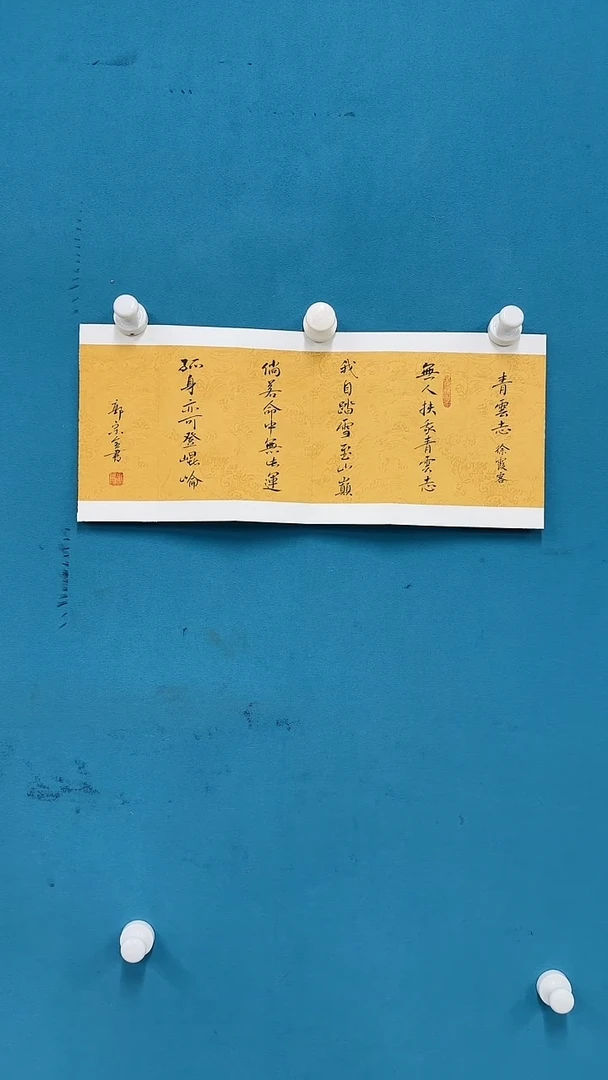 青雲志 徐霞客
無人扶我青雲志
我自踏雪至山巔
倘若命中無此運
孤身亦可登崐崘
郭宗金書